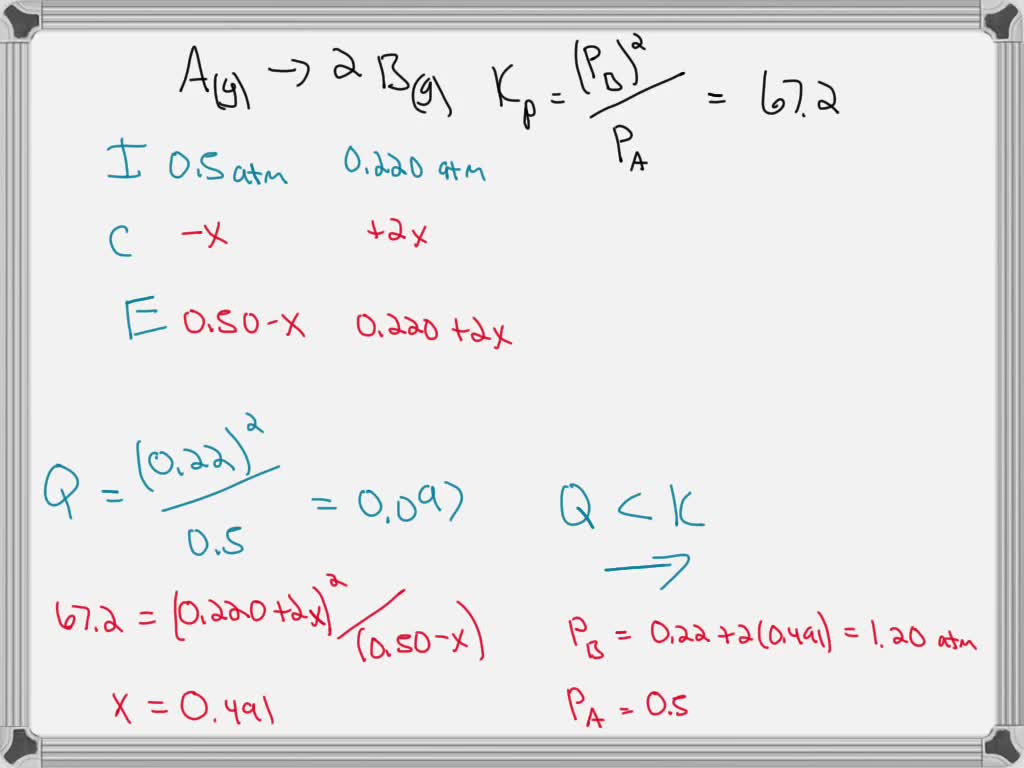 A(g) → 2 B(g) Kp = (P_B)² / P_A = 67.2
I 0.5 atm 0.220 atm
C -x +2x
E 0.50-x 0.220+2x
Q = (0.22)² / 0.5 = 0.097 Q < K
→
67.2 = (0.220+2x)² / (0.50-x)
P_B = 0.22+2(0.491) = 1.20 atm
x = 0.491
P_A = 0.5